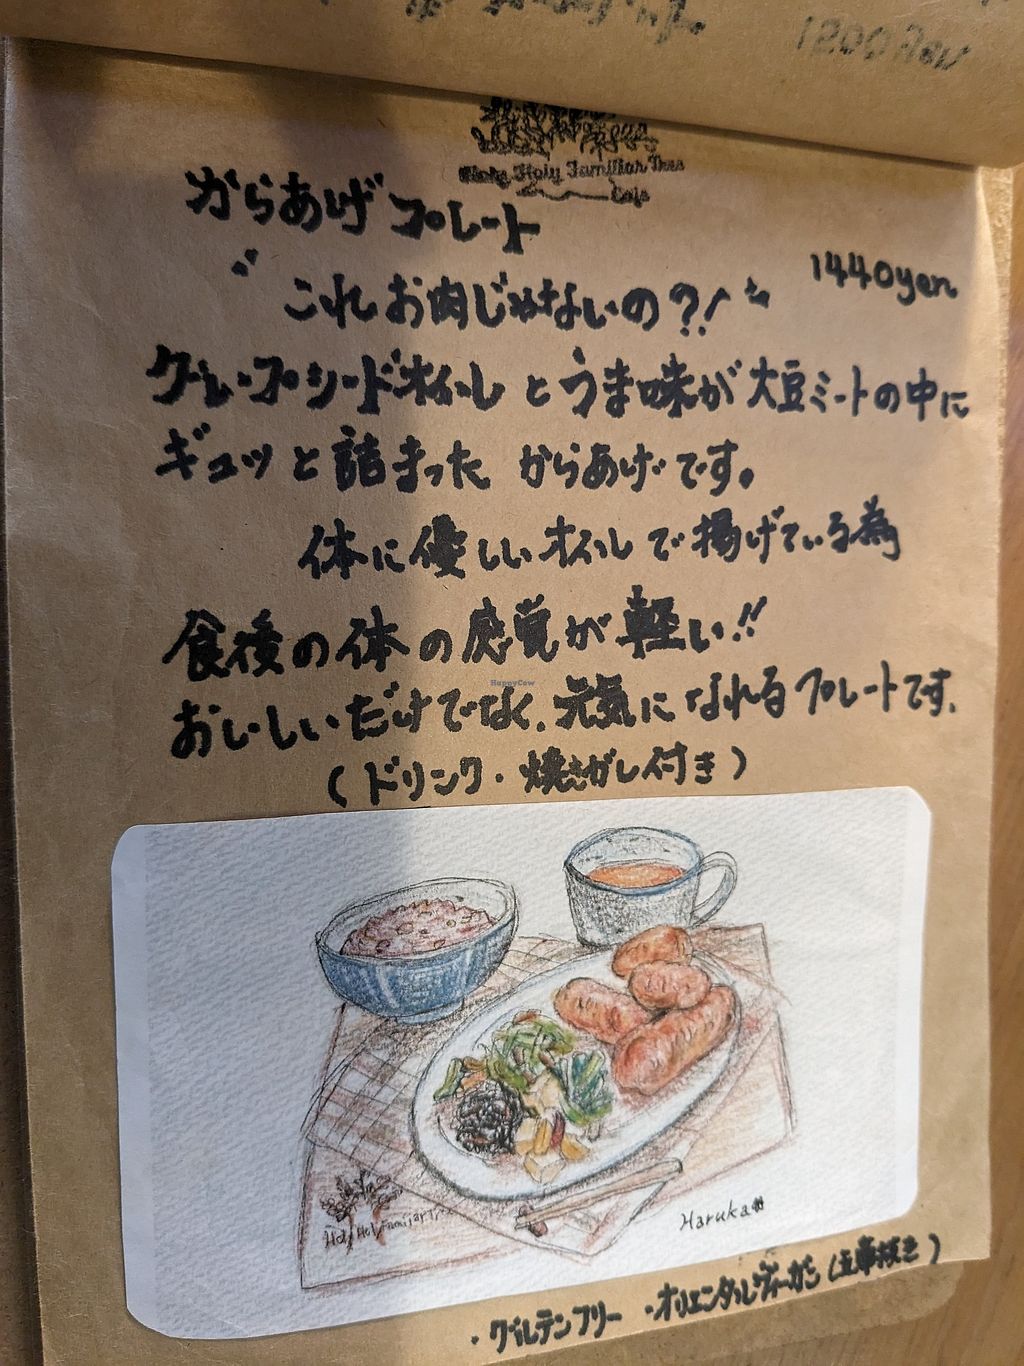 1200円
Holy Holy Familiar Trees
Cafe
からあげプレート
1440yen
"これお肉じゃないの?!"
グレープシードオイルとうま味が大豆ミートの中に
ギュッと詰まったからあげです。
体に優しいオイルで揚げている為
食後の体の感覚が軽い!!
おいしいだけでなく、元気になれるプレートです。
(ドリンク・焼きがし付き)
HappyCow
Holy Holy Familiar Trees
Haruka
・グルテンフリー ・オリエンタルヴィーガン(五葷抜き)